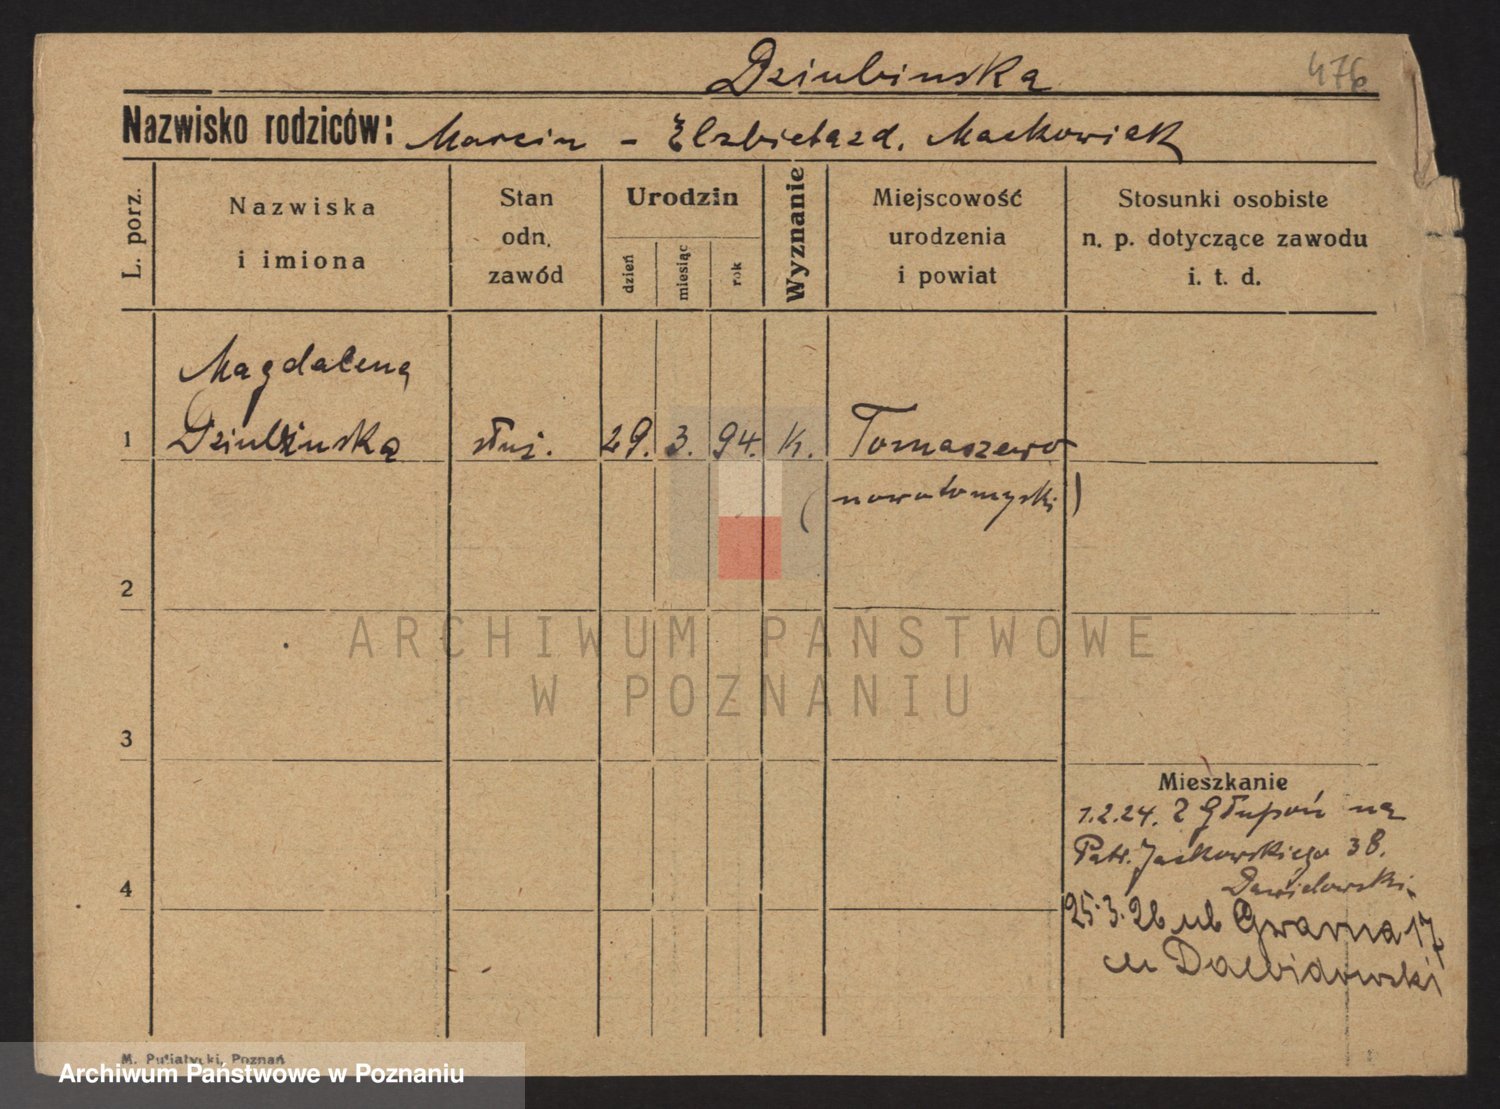 Dziubinska
476
Nazwisko rodziców: Marcin - Elzbieta zd. Mackowiak
L. porz.
Nazwiska
i imiona
Stan
odn.
zawód
Urodzin
dzień
miesiąc
rok
Wyznanie
Miejscowość
urodzenia
i powiat
Stosunki osobiste
n. p. dotyczące zawodu
i. t. d.
Magdalena
1 Dziubinska służ. 29. 3. 94. K. Tomaszewo
(nowotomyski)
2
ARCHIWUM PAŃSTWOWE
W POZNANIU
3
Mieszkanie
1.2.24. z Głupoń na
Patr. Jackowskiego 38.
Dawidowski
4
25.3.26 ul Gwarna 17
Dawidowski
M. Putiatycki, Poznań
Archiwum Państwowe w Poznaniu